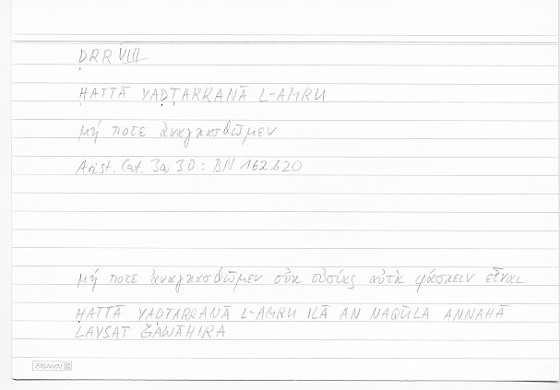 ḌRR VIII
ḤATTĀ YAḌṬARRANĀ L-AMRU
μή ποτε ἀναγκασθῶμεν
Arist. Cat. 3a 30 : BN 162b20
μή ποτε ἀναγκασθῶμεν οὐκ οὐσίας αὐτὰ φάσκειν εἶναι
ḤATTĀ YAḌṬARRANĀ L-AMRU ILĀ AN NAQŪLA ANNAHĀ
LAYSAT ǦAWĀHIRA